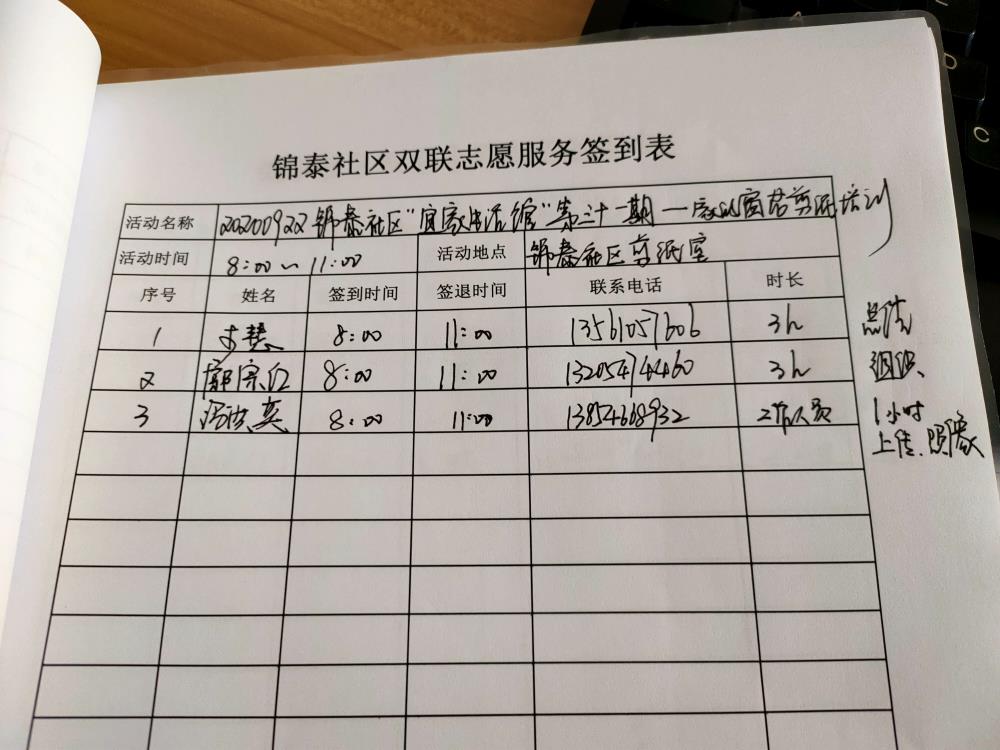 锦泰社区双联志愿服务签到表
活动名称 20200922锦泰社区"宜家生活馆"第三十一期—窗花剪纸培训
活动时间 8:00~11:00 活动地点 锦泰社区剪纸室
序号 姓名 签到时间 签退时间 联系电话 时长
1 8:00 11:00 13561057606 3h
2 郭宗红 8:00 11:00 13205474460 3h 组织、
3 冯洪英 8:00 11:00 13854668932 工作人员 1小时
上传、照像
C